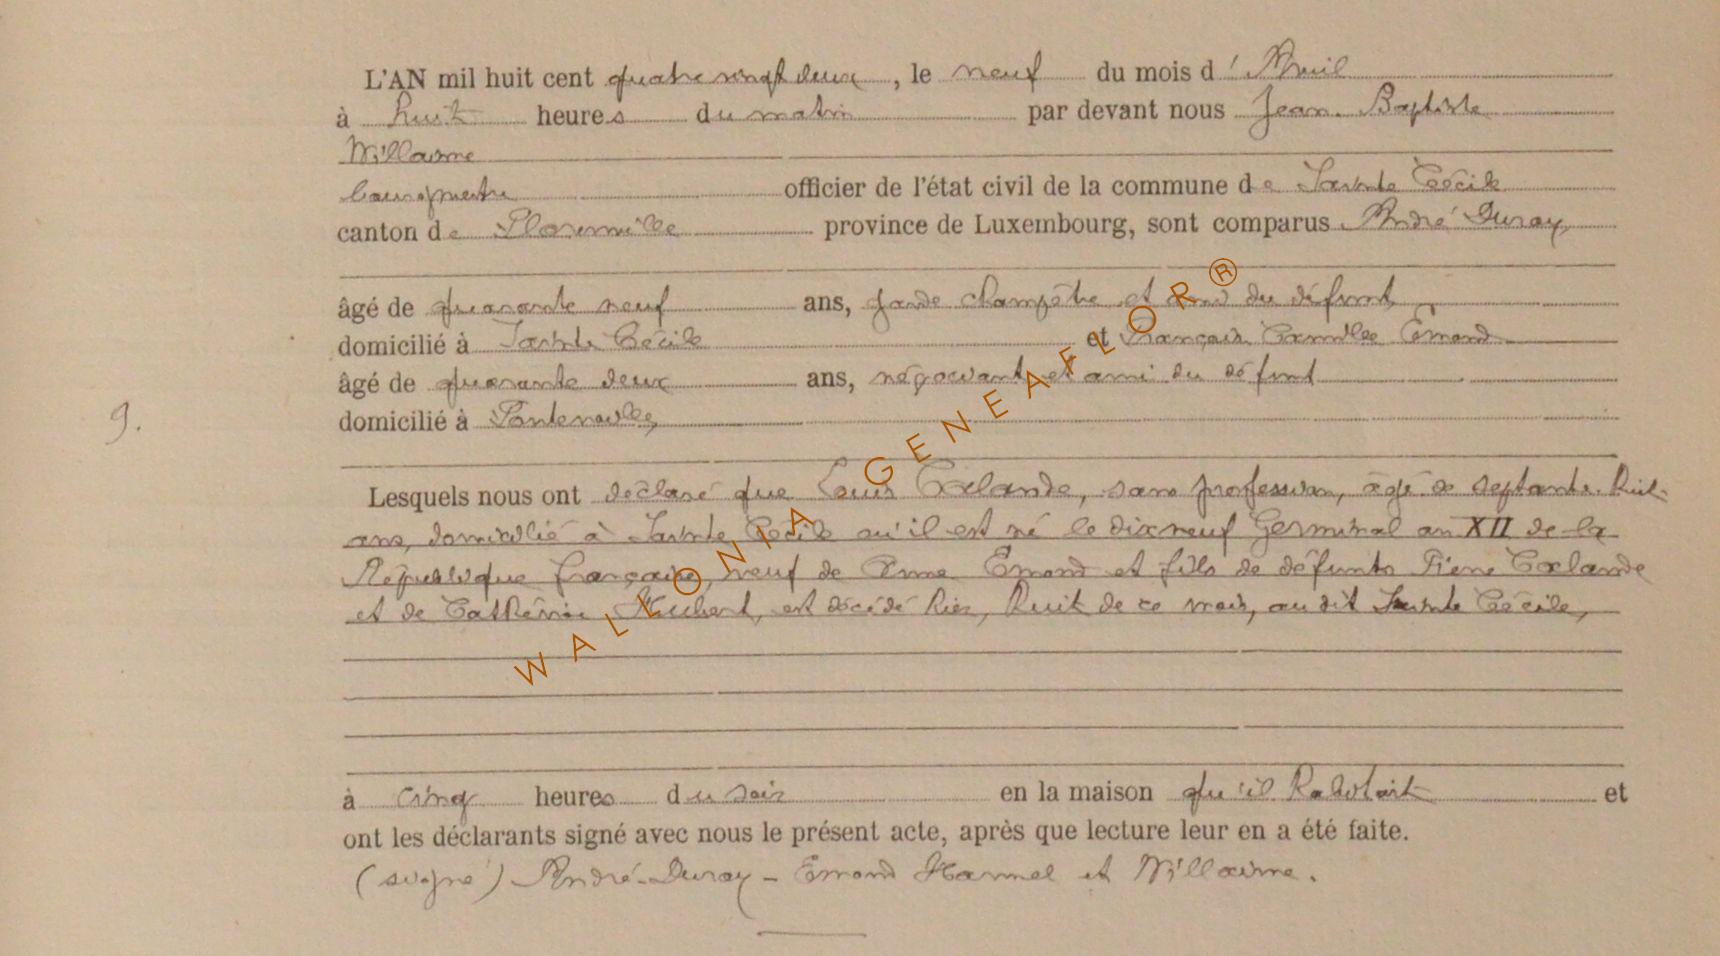 L'AN mil huit cent quatre vingt deux, le neuf du mois d'Avril
à huit heures du matin par devant nous Jean-Baptiste
Willaime
bourgmestre officier de l'état civil de la commune de Sainte Cécile
canton de Florenville province de Luxembourg, sont comparus André Duray,
âgé de quarante neuf ans, garde champêtre et ami du défunt
domicilié à Sainte Cécile et François Camille Emond
âgé de quarante deux ans, négociant et ami du défunt
domicilié à Fontenoille,
9.
Lesquels nous ont déclaré que Louis Calande, sans profession, âgé de septante-huit
ans, domicilié à Sainte Cécile où il est né le dixneuf Germinal an XII de la
République française, veuf de Anne Emond et fils de défunts Pierre Calande
et de Cathérine Hubert, est décédé hier, huit de ce mois, au dit Sainte Cécile,
à cinq heures du soir en la maison qu'il habitait et
ont les déclarants signé avec nous le présent acte, après que lecture leur en a été faite.
(signé) André-Duray - Emond Hannel et Willaime.
WALLONIA GENEAFLOR®